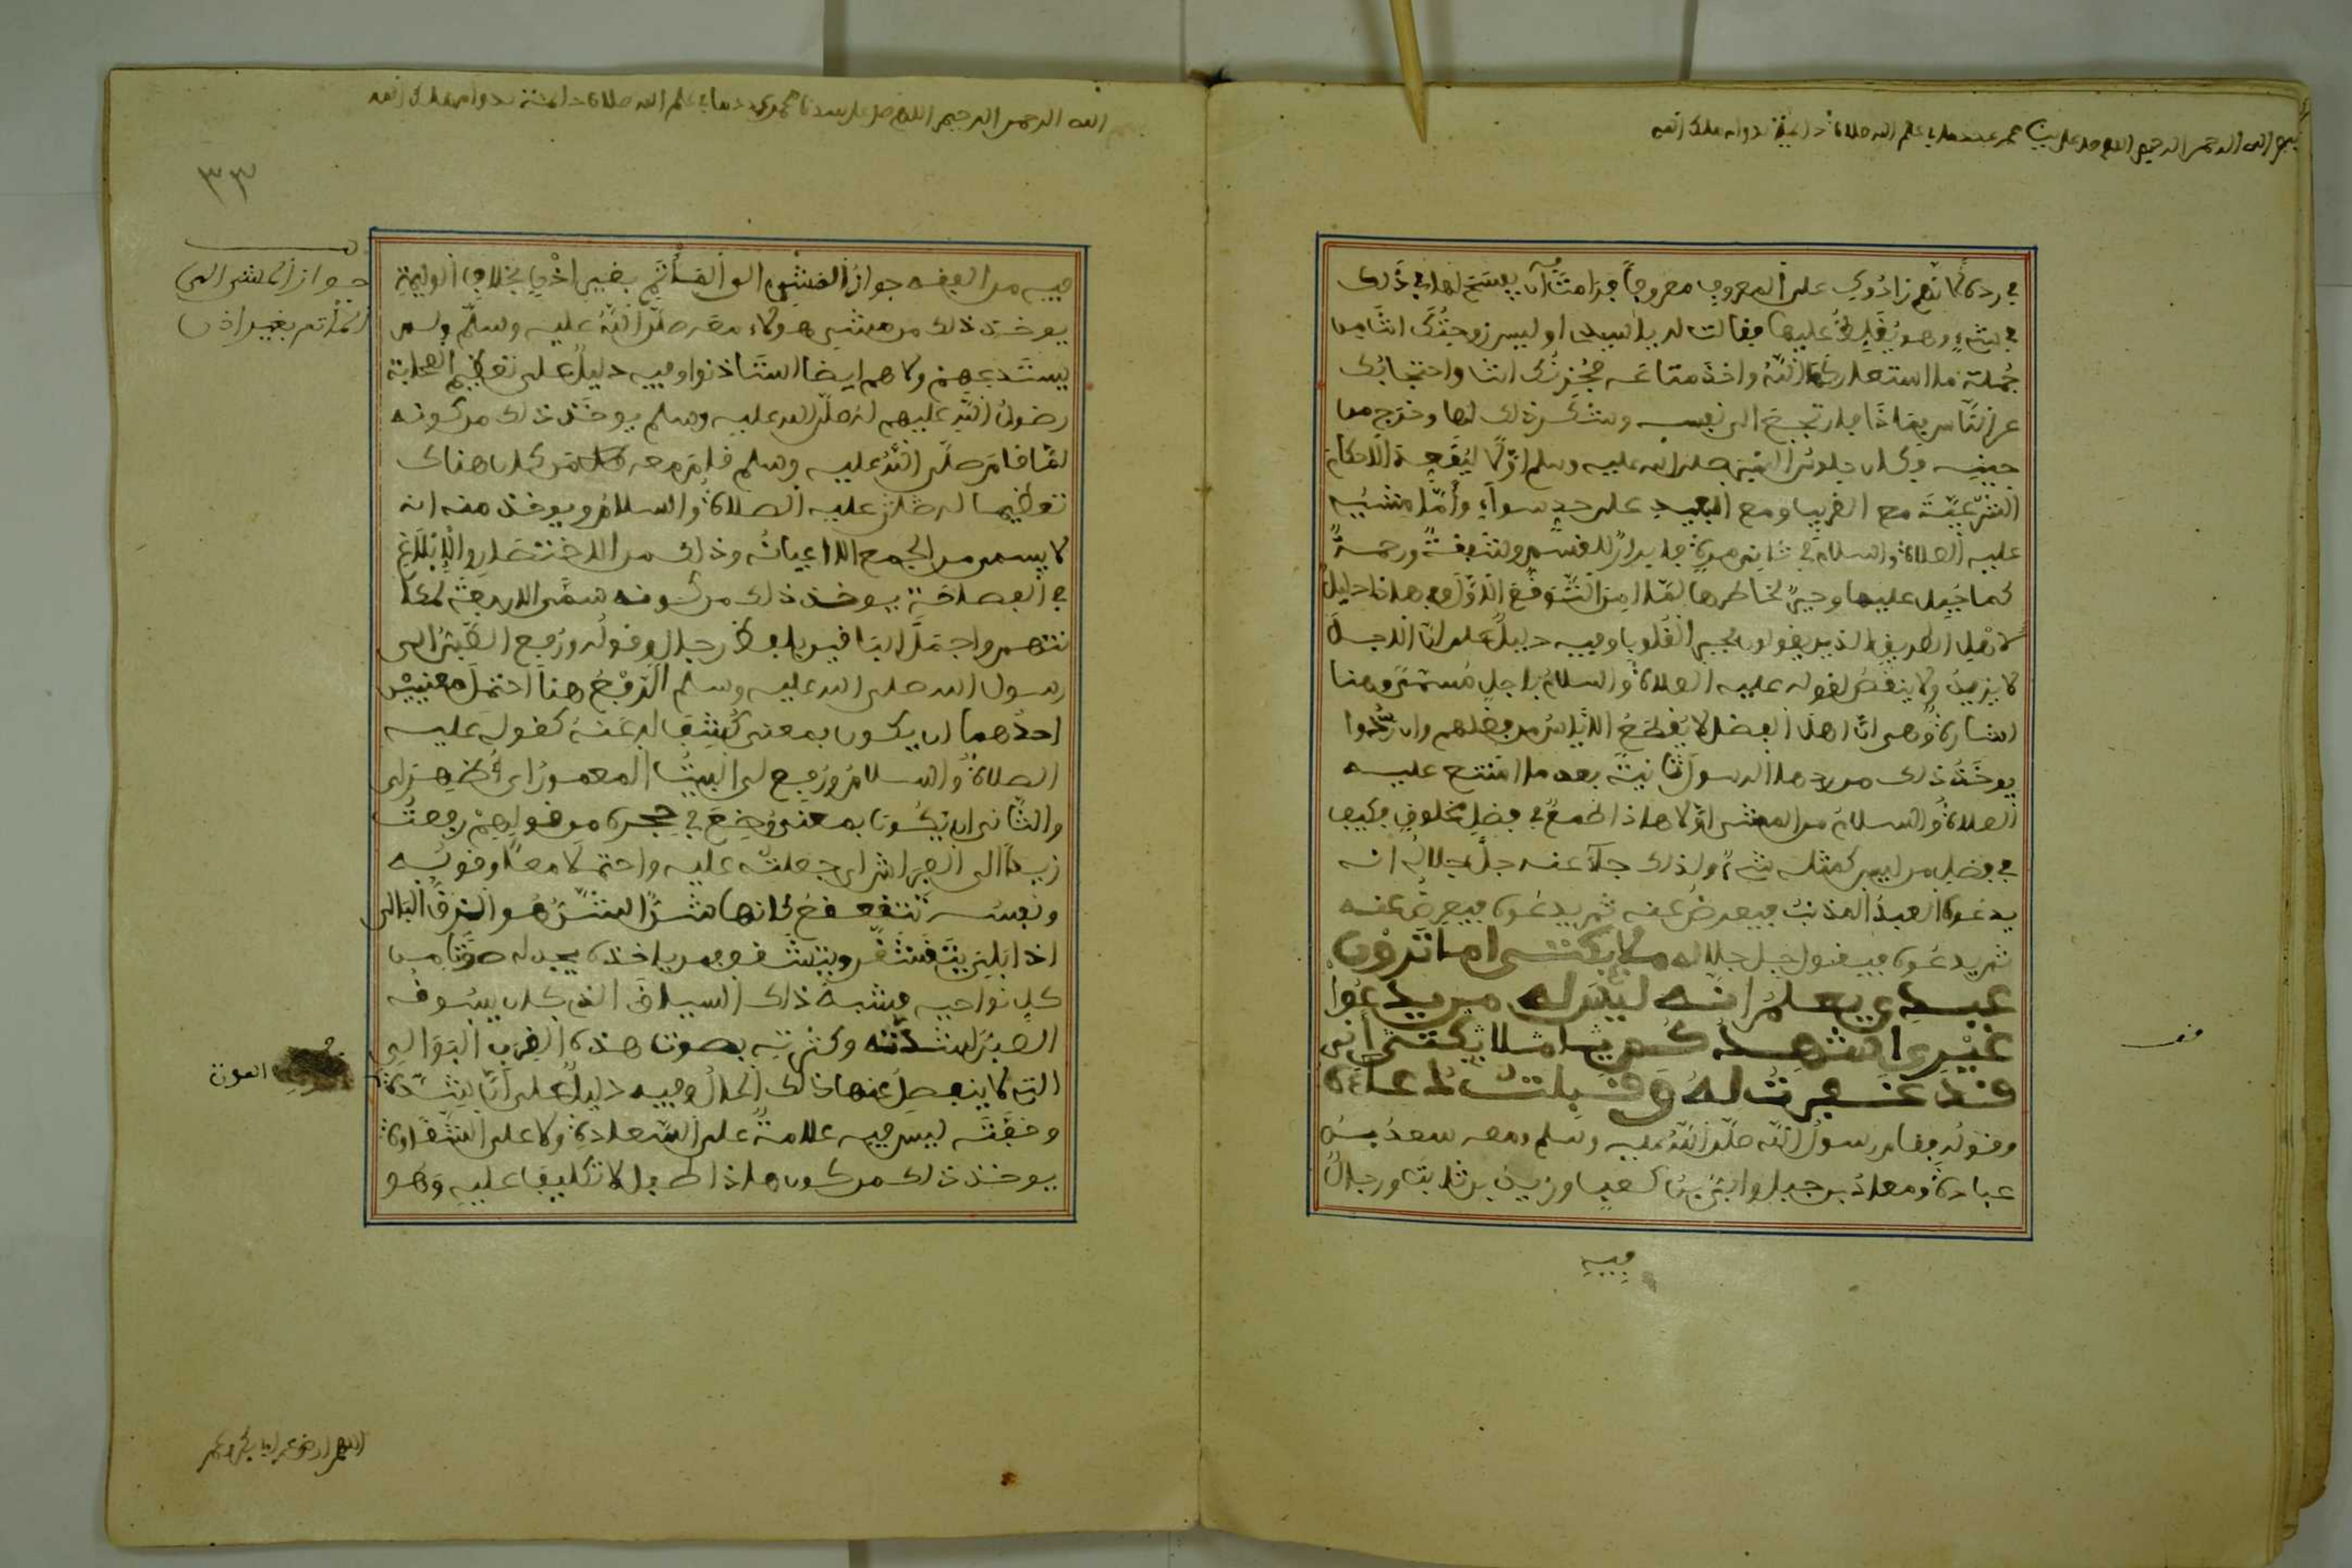 بسم الله الرحمن الرحيم اللهم صل على سيدنا محمد عدد ما في علم الله صلاة دائمة بدوام ملك الله
في ردء
على المعروف معروفا
في شيء وهو يغلظ عليها فقالت له يا سيدي او ليس زوجتك
جملة ما استعار الله واخذ متاعه
عن الناس
جبينه وكان جلوس النبي صلى الله عليه وسلم اولا ليقعد الاحكام
الشرعية مع القريب ومع البعيد على حد سواء وأما مشيه
عليه الصلاة والسلام في ثاني مرة ابرار للقسم وشفقة ورحمة
كما جبل عليها وجبرا لخاطرها لما امر التوقع الاول وفي هذا دليل
لاهل الطريق الذين يقولون بجبر القلوب وفيه دليل على ان الاجل
لا يزيد ولا ينقص لقوله عليه الصلاة والسلام باجل مسمى وهنا
اشارة وهي ان اهل الفضل لا يقطع الاياس من فضلهم وان ردوا
يوخذ ذلك من ردها الرسول ثانية بعد ما امتنع عليه
الصلاة والسلام من المشي اولا هاذا الطمع في فضل مخلوق فكيف
في فضل من ليس كمثله شيء ولذلك جاء عنه جل جلاله انه
يدعوه العبد المذنب فيعرض عنه ثم يدعوه فيعرض عنه
ثم يدعوه فيقول جل جلاله ملايكتي اما ترون
عبدي يعلم انه ليس له من يدعوا
غيري اشهدكم يا ملايكتي اني
قد غفرت له وقبلت دعاءه
وقوله فقام رسول الله صلى الله عليه وسلم ومعه سعد بن
عبادة ومعاذ بن جبل وابي بن كعب وزيد بن ثابت ورجال
فيه
الله الرحمن الرحيم اللهم صل على سيدنا محمد عدد ما في علم الله صلاة دائمة بدوام ملك الله
٣٣
جواز المشي الى
المأتم بغير اذن
فيه من الفقه جواز المشي الى المأتم بغير اذن بخلاف الوليمة
يوخذ ذلك من مشي هولاء معه صلى الله عليه وسلم ولم
يستدعهم ولا هم ايضا استاذنوا وفيه دليل على تعظيم الصحابة
رضوان الله عليهم له صلى الله عليه وسلم يوخذ ذلك من كونه
لما قام صلى الله عليه وسلم قام معه كل من كان هناك
تعظيما له صلى عليه الصلاة والسلام ويوخذ منه انه
لا يسمى من الجمع الا اعيانه وذلك من الاختصار والابلاغ
في الفصاحة يوخذ ذلك من كونه سمى الاربعة
واجمل الباقين بلفظ رجال وقوله ورفع الصبي الى
رسول الله صلى الله عليه وسلم الرفع هنا احتمل معنيين
احدهما ان يكون بمعنى كشف له عنه كقوله عليه
الصلاة والسلام ورفع لي البيت المعمور اي أظهر لي
والثاني ان يكون بمعنى وضع في حجره من قولهم رفعت
زيدا الى الفراش اي جعلته عليه واحتملا معا وقوله
ونفسه تتقعقع كانها شن الشن هو الزق البالي
كل نواحيه فشبه ذلك السياق الذي كان يسوقه
الصبي لشدته وكثرته بصوت هذه القرب البوالي
التي لا ينفصل عنها ذلك الحال وفيه دليل على ان شدة الموت
وخفته ليس فيه علامة على السعادة ولا على الشقاوة
يوخذ ذلك من كون هذا طفل لا تكليف عليه وهو
اللهم ارض عن ابا بكر وعمر